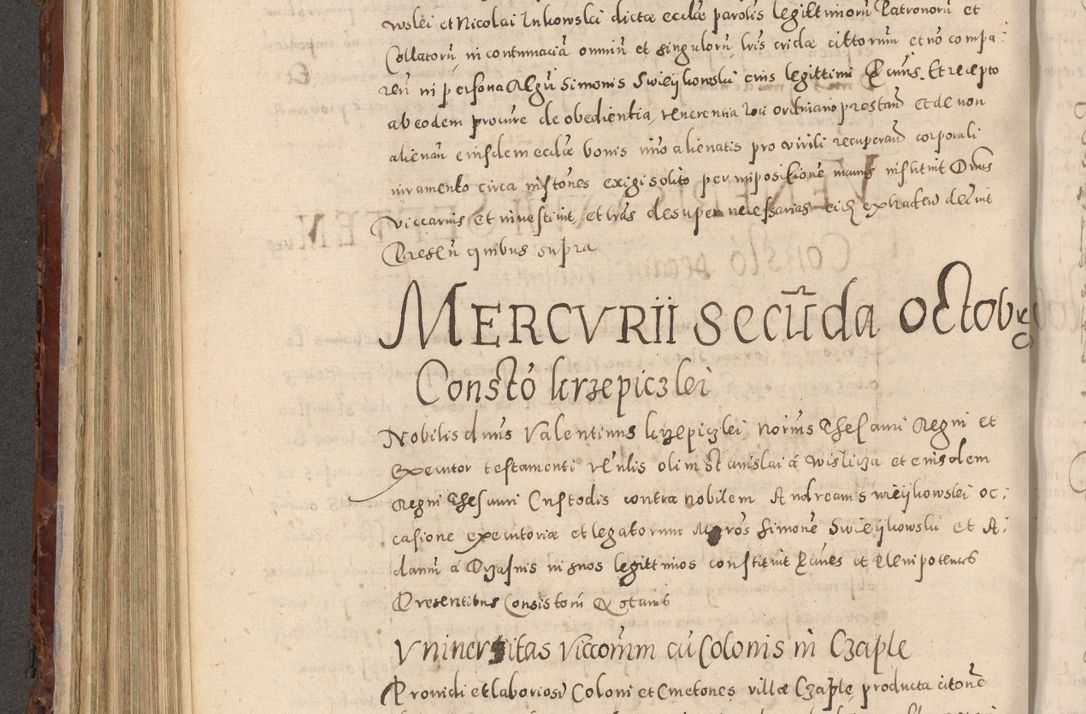 wslei et Nicolai Inkowslci dictæ ecclæ parolis legittimorū Patronorū et
Collatorū in contumaciā omniū et singulorū lris cridæ cittorum et nō compa:
ren in persona Regū Simonis Swieÿkowski eius legittimi Pcuris. Et recepto
ab eodem procure de obedientia, reuerentia loci ordinario prestan et de non
alienan eiusdem ecclæ bonis imo alienatis pro virili recuperan corporali
iuramento circa instones exigi solito per impositione manus instituit Dnus
viccarius Et inuestiuit, et lras desuper necessarias eidē extraden decreuit
Presen quibus supra
MERCVRII Secūda octobrs
Constō krzepiczlei
Nobilis dnus Valentinus krzepiczlei norius Thesauri Regni et
Executor testamenti re'nlis olim Stanislai à Wislicza et eiusdem
Regni Thesauri Custodis contra nobilem Andream Swieÿkowslei oc:
casione executoriæ et legatorum Mgros Simonē Swieÿkowslii et A:
damū à Dzasnis in suos legittimos constituit Pcures et Plenipotentes
Presentibus Consistorii Notariis
Vniuersitas Viccōrum cū Colonis in Czaple
Prouidi et laboriosi Coloni et Cmetones villæ Czaple producta citone